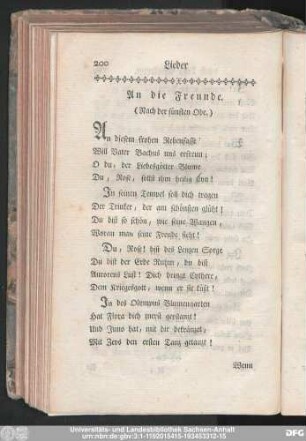 200 Lieder
An die Freunde.
(Nach der fünften Ode.)
An diesem frohen Rebensafte
Will Vater Bachus uns erfreun;
O du, der Liebesgötter Blume
Du, Rose, sollst ihm heilig seyn!
In seinen Tempel soll dich tragen
Der Trinker, der am schönsten glüht!
Du bist so schön, wie seine Wangen,
Woran man seine Freude sieht!
Du, Ros! bist des Lenzen Sorge
Du bist der Erde Ruhm, du bist
Aurorens Lust! Dich bringt Cythere,
Dem Kriegesgott, wenn er sie küßt!
In des Olympus Blumengarten
Hat Flora dich zuerst gepflanzt!
Und Juno hat, mit dir bekränzet,
Mit Zevs den ersten Tanz getanzt!
Wenn
Universitäts- und Landesbibliothek Sachsen-Anhalt
urn:nbn:de:gbv:3:1-1192015415-193453312-15
DFG